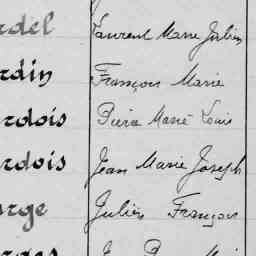 rdel Laurent Marie Julien
rdin François Marie
rdois Pierre Marie Louis
rdois Jean Marie Joseph
rge Julien François